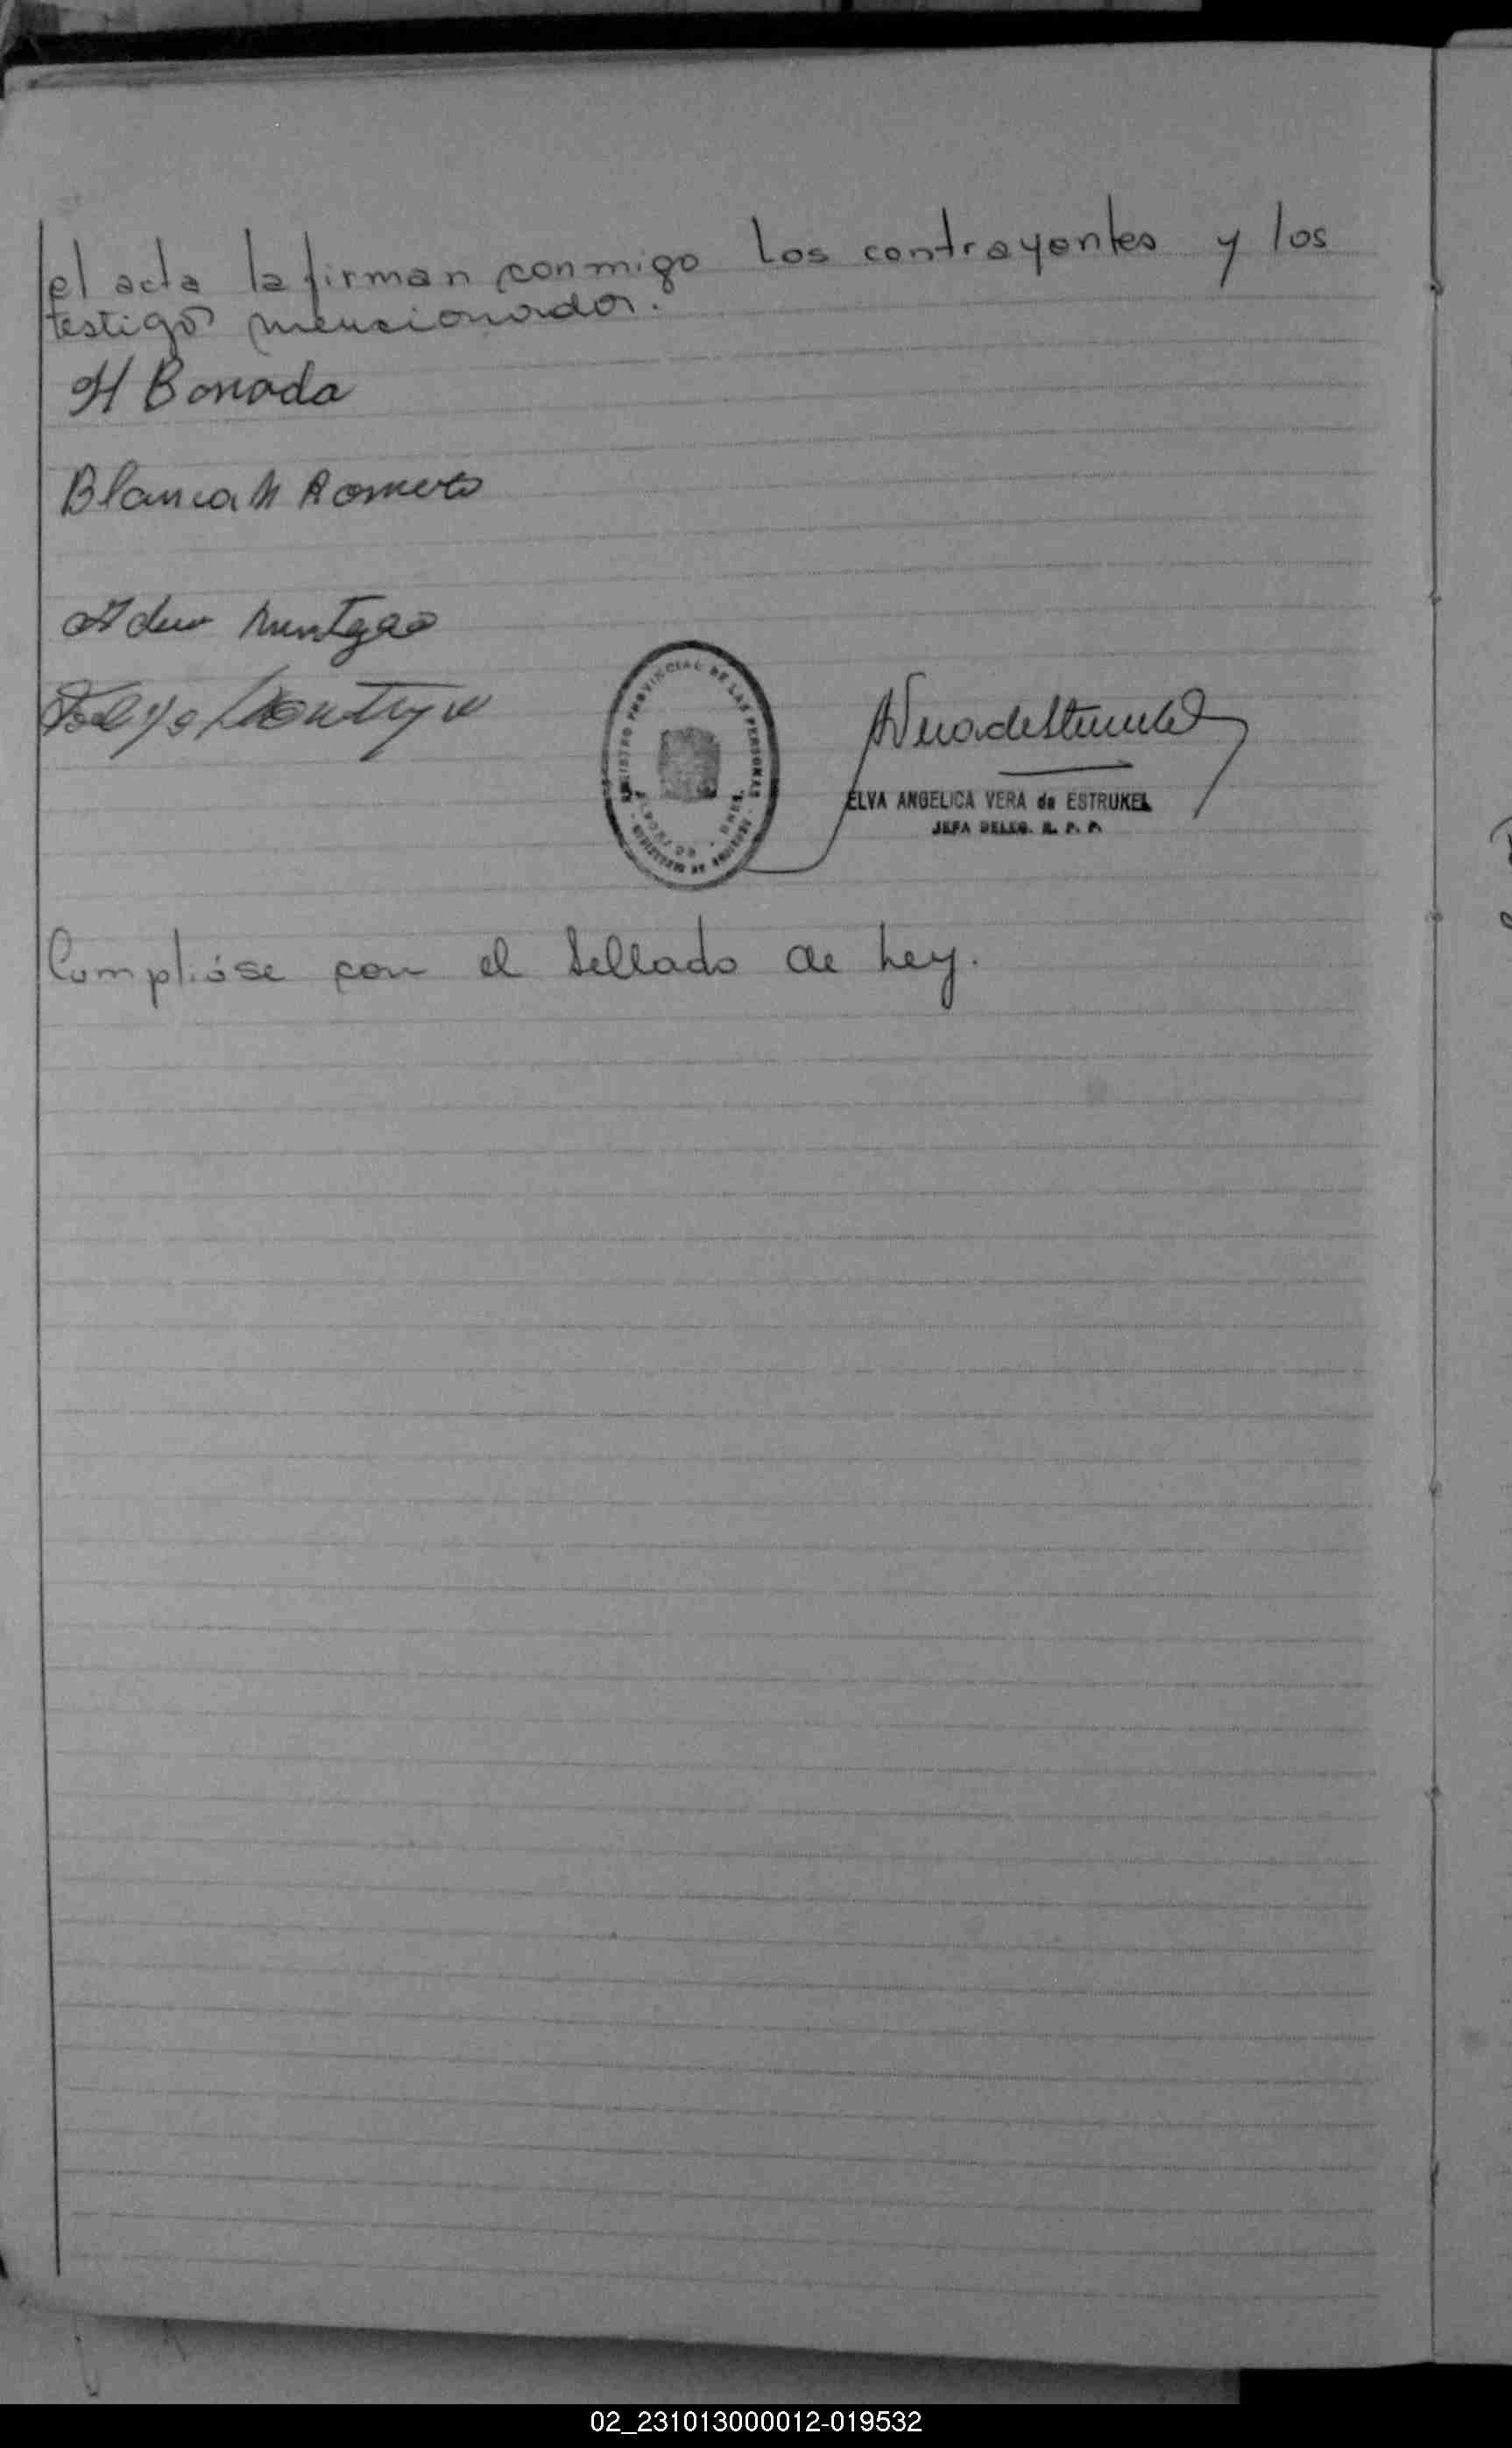 el acta la firman conmigo los contrayentes y los
testigos mencionados.
H Bonada
Blanca N Romero
REGISTRO PROVINCIAL DE LAS PERSONAS
ELVA ANGELICA VERA de ESTRUKEL
JEFA DELEG. R. P. P.
Cumplióse con el Sellado de Ley.
02_231013000012-019532